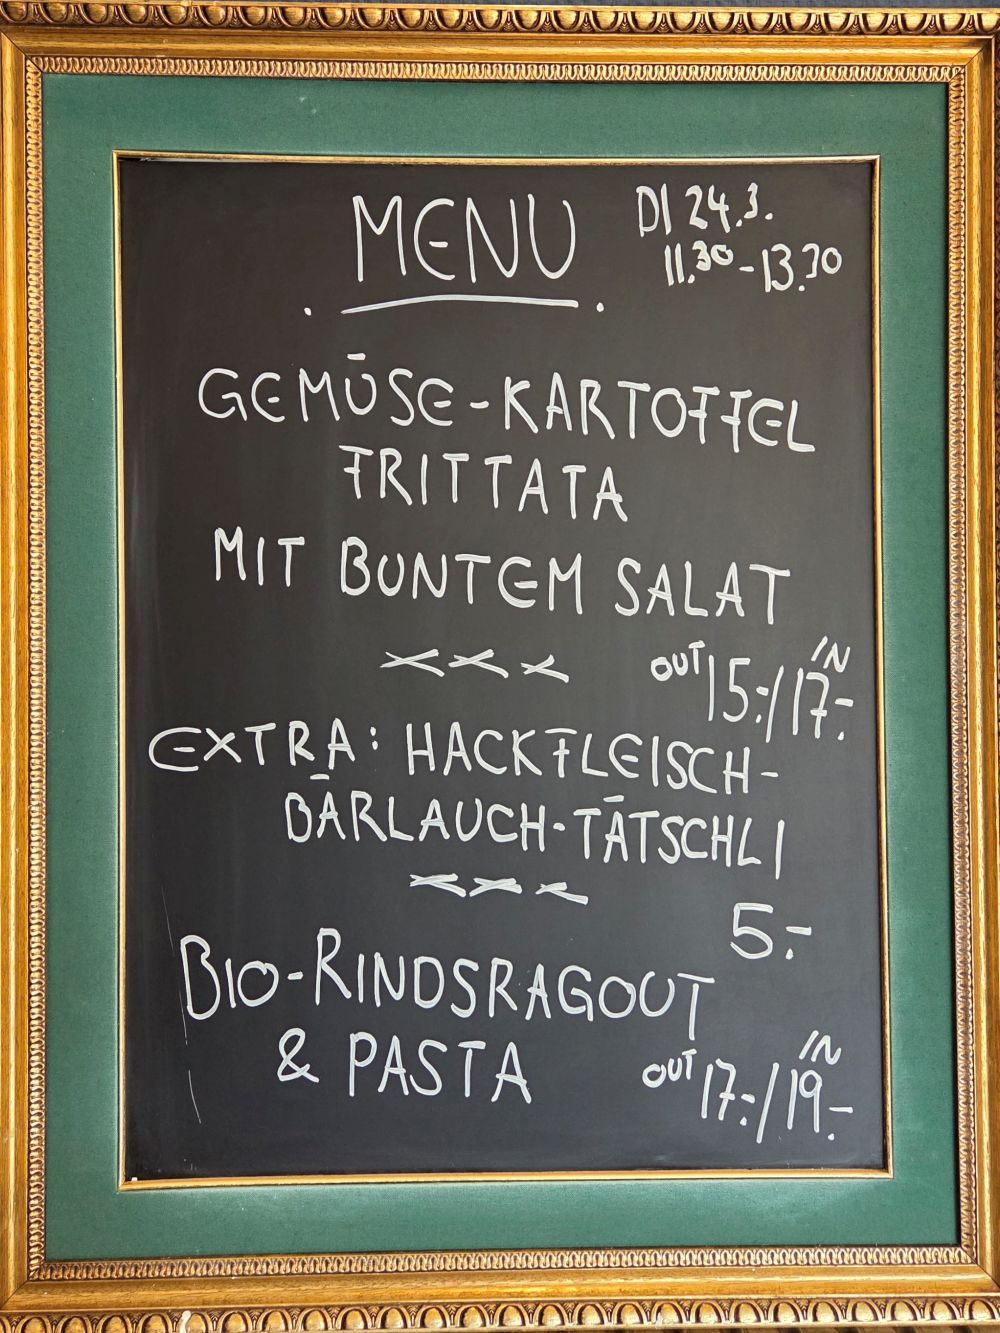 MENU
DI 24.3.
11.30-13.30
GEMÜSE-KARTOFFEL
FRITTATA
MIT BUNTEM SALAT
OUT 15.-/ IN 17.-
EXTRA: HACKFLEISCH-
BÄRLAUCH-TÄTSCHLI
5.-
BIO-RINDSRAGOUT
& PASTA
OUT 17.-/ IN 19.-